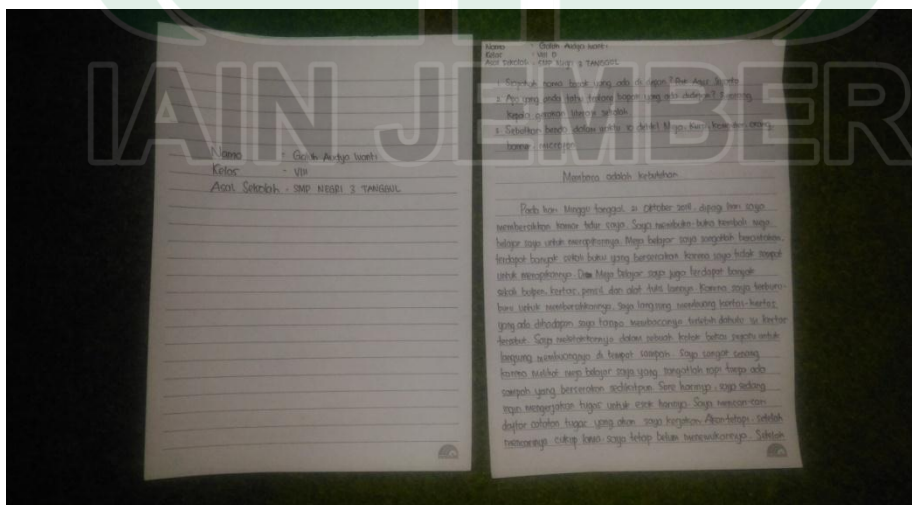 IAIN JEMBER
Nama : Galih Audya Iwanti
Kelas : VIII
Asal Sekolah : SMP NEGRI 3 TANGGUL
Nama : Galih Audya Iwanti
Kelas : VIII D
Asal Sekolah : SMP Negri 3 TANGGUL
1. nama bapak yang ada di depan?
2. Apa yang anda tahu tentang bapak yang ada didepan? Seorang
kepala gerakan literasi sekolah
3. Sebutkan benda dalam waktu 10 detik! Meja, kursi, orang,
banner, microfon
Membaca adalah kebutuhan
Pada hari Minggu tanggal, 21 Oktober 2018, dipagi hari saya
membersihkan kamar tidur saya. Saya membuka-buka kembali meja
belajar saya untuk merapikannya. Meja belajar saya sangatlah berantakan,
terdapat banyak sekali buku yang berserakan karena saya tidak sempat
untuk merapikannya. Meja belajar saya juga terdapat banyak
sekali bolpen, kertas, pensil dan alat tulis lainnya. Karena saya terburu-
buru untuk membersihkannya, saya langsung membuang kertas-kertas
yang ada dihadapan saya tanpa membacanya terlebih dahulu isi kertas
tersebut. Saya meletakkannya dalam sebuah kotak bekas sepatu untuk
langsung membuangnya di tempat sampah. Saya sangat senang
karena melihat meja belajar saya yang sangatlah rapi tanpa ada
sampah yang berserakan sedikitpun. Sore harinya, saya sedang
ingin mengerjakan tugas untuk esok harinya. Saya mencari-cari
daftar catatan tugas yang akan saya kerjakan. Akan tetapi, setelah
mencarinya cukup lama saya tetap belum menemukannya. Setelah